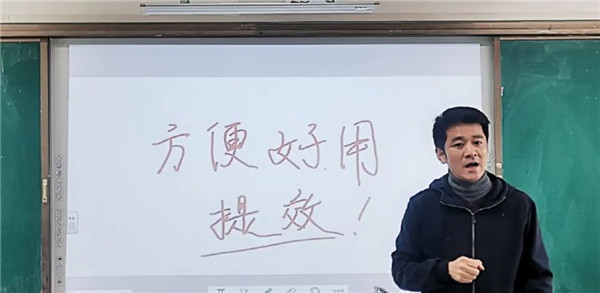 方便好用
提效!